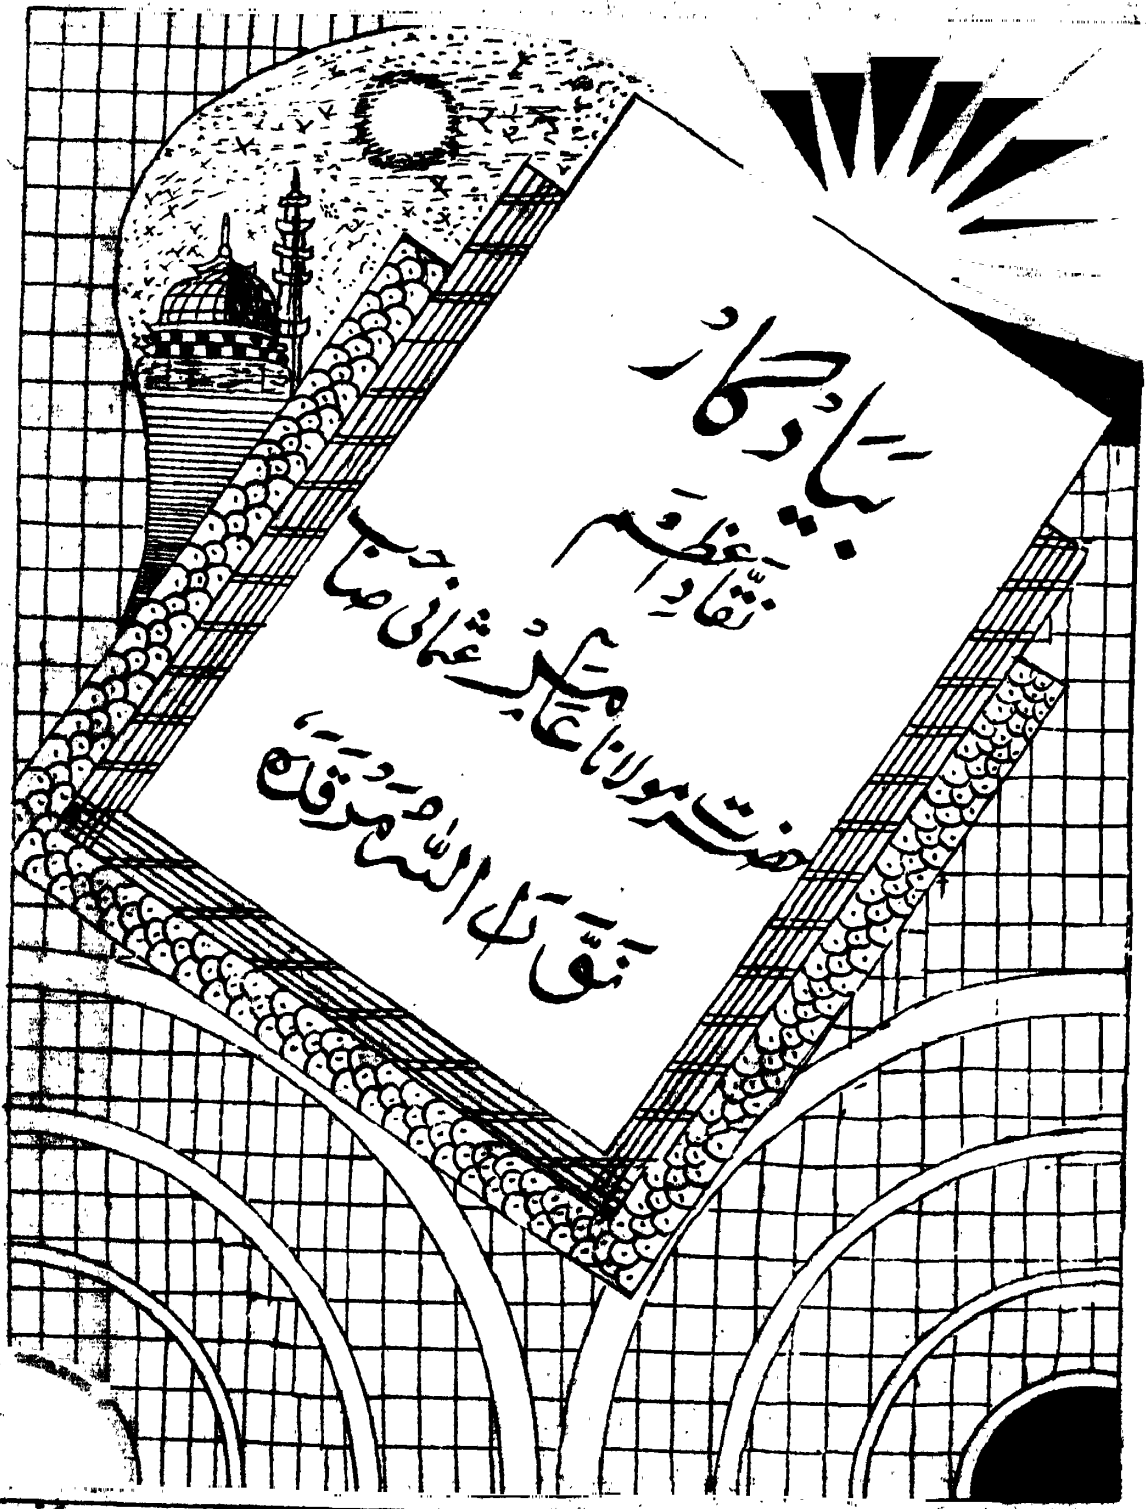 بیادگار
نقّادِ اعظم
حضرت مولانا عامر عثمانی صاحب
نَوَّرَ اللّٰہُ مَرْقَدَہٗ